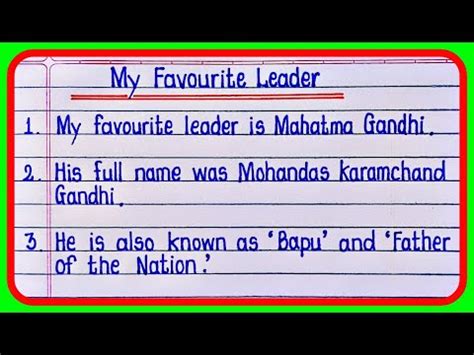 My Favourite Leader
1. My favourite leader is Mahatma Gandhi.
2. His full name was Mohandas karamchand
Gandhi.
3. He is also known as 'Bapu' and 'Father
of the Nation.'